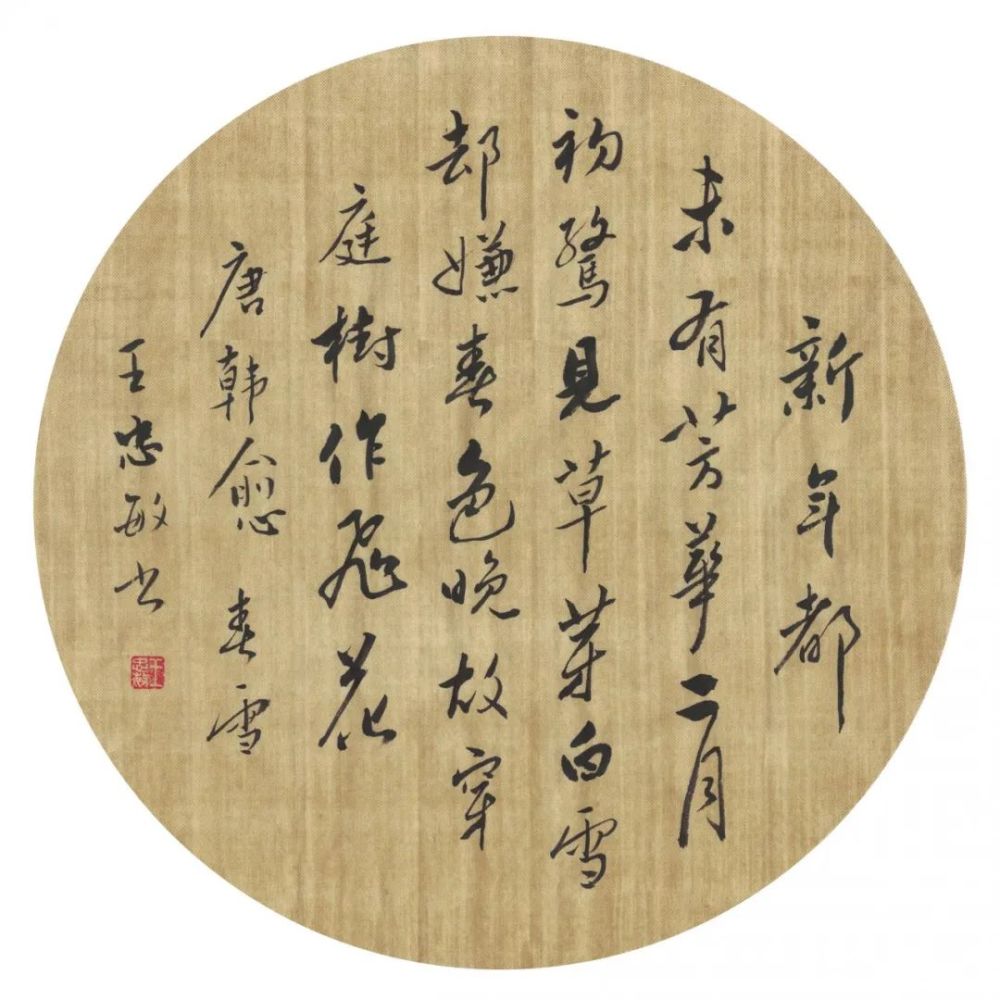 新年都
未有芳華二月
初驚見草芽白雪
却嫌春色晚故穿
庭樹作飛花
唐韩愈 春雪
王忠敏书
王忠敏